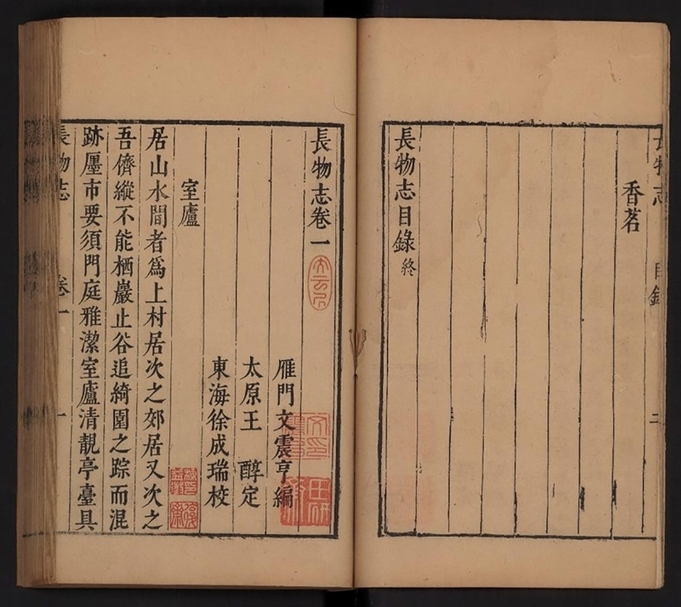 長物志
目錄
二
香茗
長物志目錄終
長物志卷一
雁門文震亨編
太原王　醇定
東海徐成瑞校
室廬
居山水間者爲上村居次之郊居又次之
吾儕縱不能栖巖止谷追綺園之踪而混
跡廛市要須門庭雅潔室廬清靚亭臺具
長物志
卷一
一